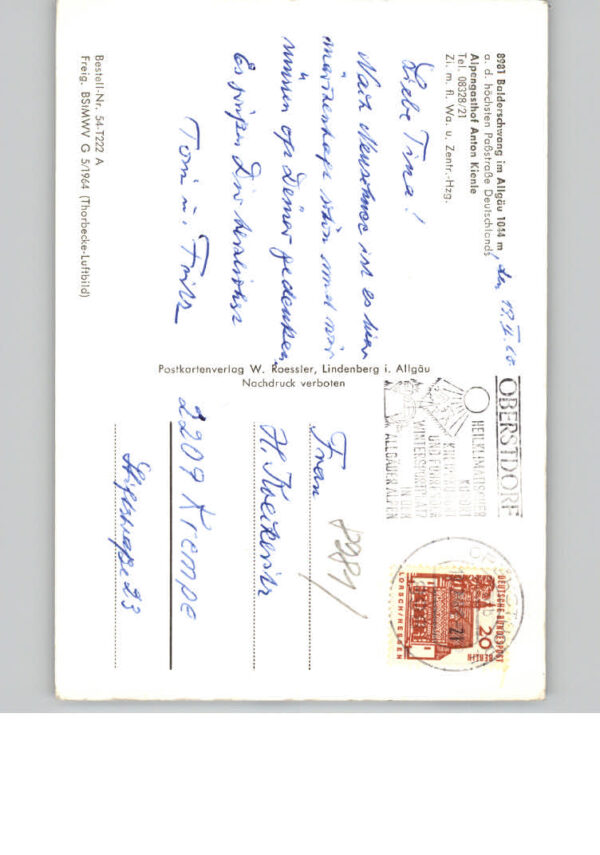 8981 Balderschwang im Allgäu 1044 m
a. d. höchsten Paßstraße Deutschlands
Alpengasthof Anton Kienle
Tel. 08328/21
Zi. m. fl. Wa. u. Zentr.-Hzg.
den
Liebe Tina!
Nach Neuschnee ist es hier
märchenhaft schön und wir
müssen oft Deiner gedenken.
Es grüßen Dir herzlichst
Toni u. Fritz
Bestell-Nr. 54-T222 A
Freig. BSIMWV G 5/1964 (Thorbecke-Luftbild)
Postkartenverlag W. Roessler, Lindenberg i. Allgäu
Nachdruck verboten
OBERSTDORF
HEILKLIMATISCHER
KURORT
UND
WINTERSPORTPLATZ
IN DEN
ALLGÄUER ALPEN
DEUTSCHE BUNDESPOST
BERLIN
20
LORSCH/HESSEN
8981/
Frau
H.
2209 Krempe
Stiftstraße 23